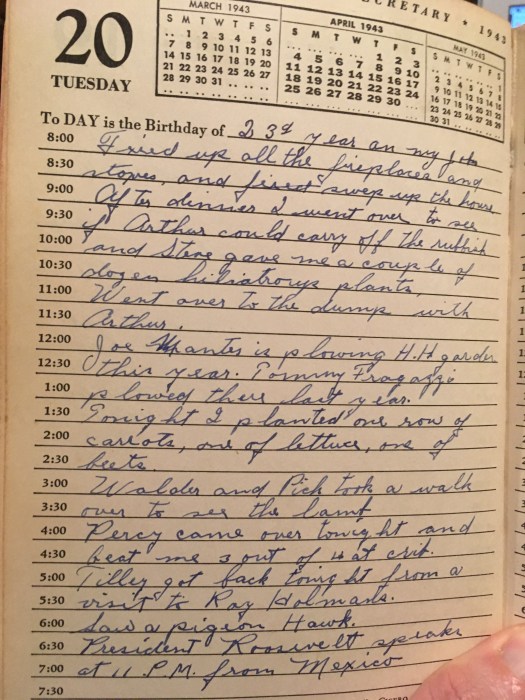 MARCH 1943
S M T W T F S
.. 1 2 3 4 5 6
7 8 9 10 11 12 13
14 15 16 17 18 19 20
21 22 23 24 25 26 27
28 29 30 31
CRETARY ★ 1943
APRIL 1943
S M T W T F S
1 2 3
4 5 6 7 8 9 10
11 12 13 14 15 16 17
18 19 20 21 22 23 24
25 26 27 28 29 30
MAY 1943
S M T W T F S
1
2 3 4 5 6 7 8
9 10 11 12 13 14 15
16 17 18 19 20 21 22
23 24 25 26 27 28 29
30 31
20
TUESDAY
To DAY is the Birthday of 23d year on my job
8:00 Fixed up all the fireplaces and
8:30 stoves, and fixed swep up the house
9:00 After dinner I went over to see
9:30 if Arthur could carry off the rubbish
10:00 and Steve gave me a couple of
10:30 dozen hiliatroup plants
11:00 Went over to the dump with
11:30 Arthur.
12:00 Joe is plowing H.H garden
12:30 this year. Tommy Fragazzi
1:00 plowed there last year.
1:30 Tonight I planted one row of
2:00 carrots, one of lettuce, one of
2:30 beets.
3:00 Walder and Pick took a walk
3:30 over to see the
4:00 Percy came over tonight and
4:30 beat me 3 out of 4 at crib.
5:00 Tilley got back tonight from a
5:30 visit to Ray Holmans.
6:00 Saw a pigeon Hawk.
6:30 President Roosevelt speaks
7:00 at 11 P.M. from Mexico
7:30